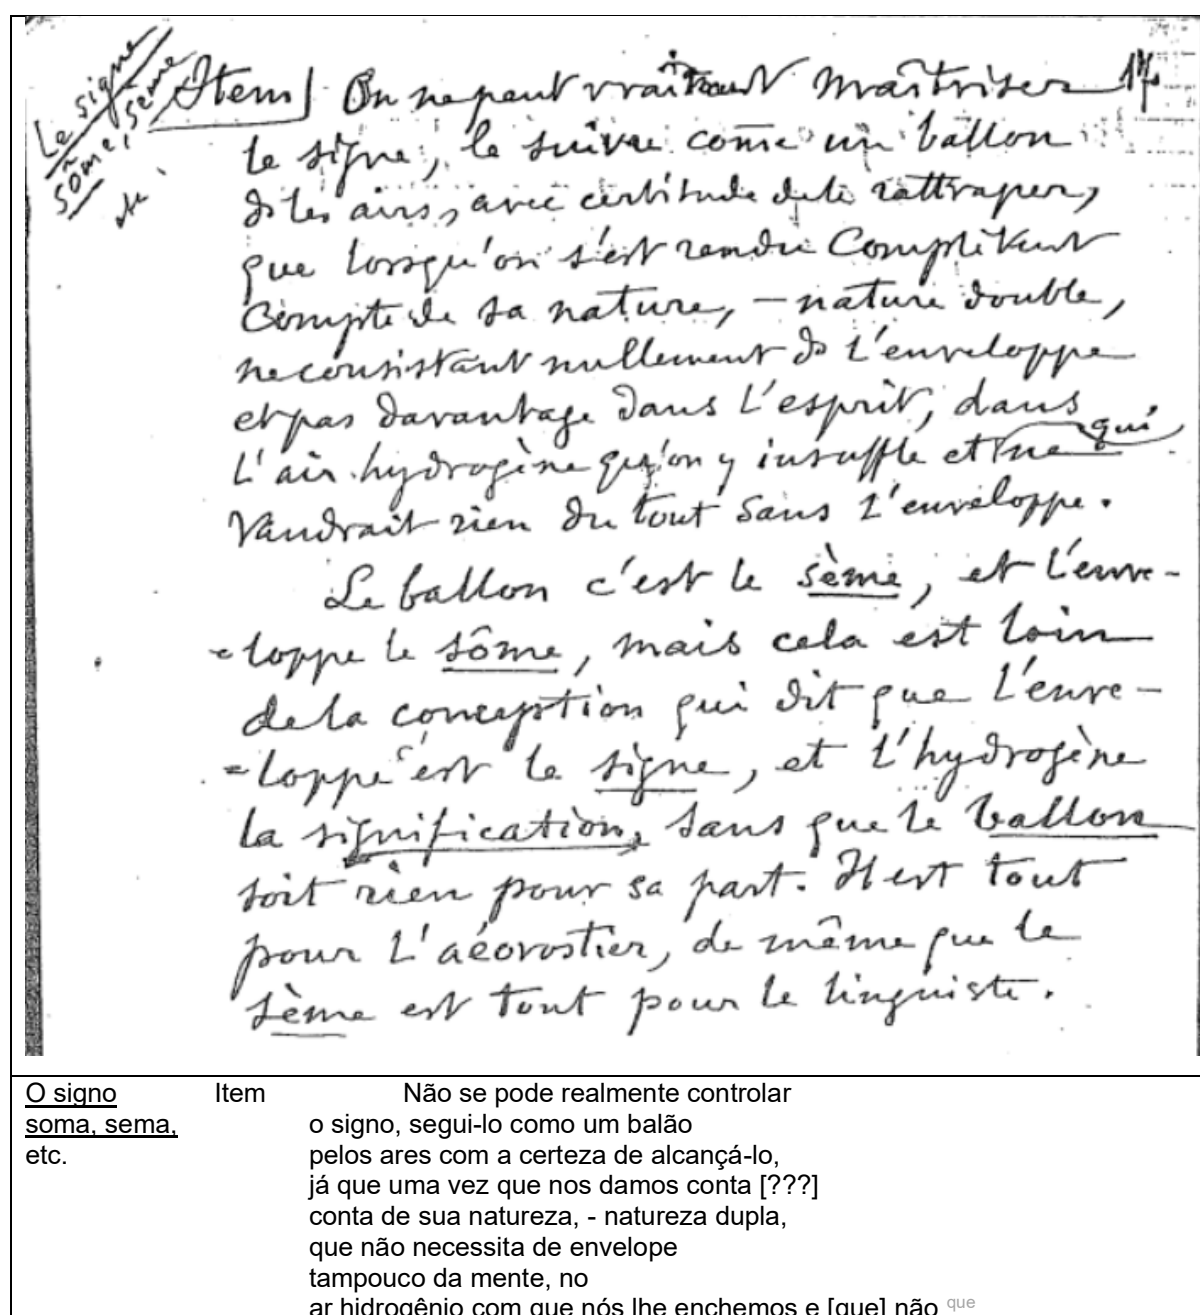 Le signe
sôme, sème
etc.
Item] On ne peut vraiment maîtriser 17
le signe, le suivre come un ballon
ds les airs, avec certitude de le rattraper,
que lorsqu'on s'est rendu complètent
compte de sa nature, – nature double,
ne consistant nullement ds l'enveloppe
et pas davantage dans l'esprit, dans
L'air hydrogène qu'on y insuffle et qui ne
vaudrait rien du tout sans l'enveloppe.
Le ballon c'est le sème, et l'enve-
=loppe le sôme, mais cela est loin
de la conception qui dit que l'enve-
=loppe est le signe, et l'hydrogène
la signification, sans que le ballon
soit rien pour sa part. Il est tout
pour l'aérostier, de même que le
sème est tout pour le linguiste.
O signo Item Não se pode realmente controlar
soma, sema, o signo, segui-lo como um balão
etc. pelos ares com a certeza de alcançá-lo,
já que uma vez que nos damos conta [???]
conta de sua natureza, - natureza dupla,
que não necessita de envelope
tampouco da mente, no
ar hidrogênio com que nós lhe enchemos e [que] não que